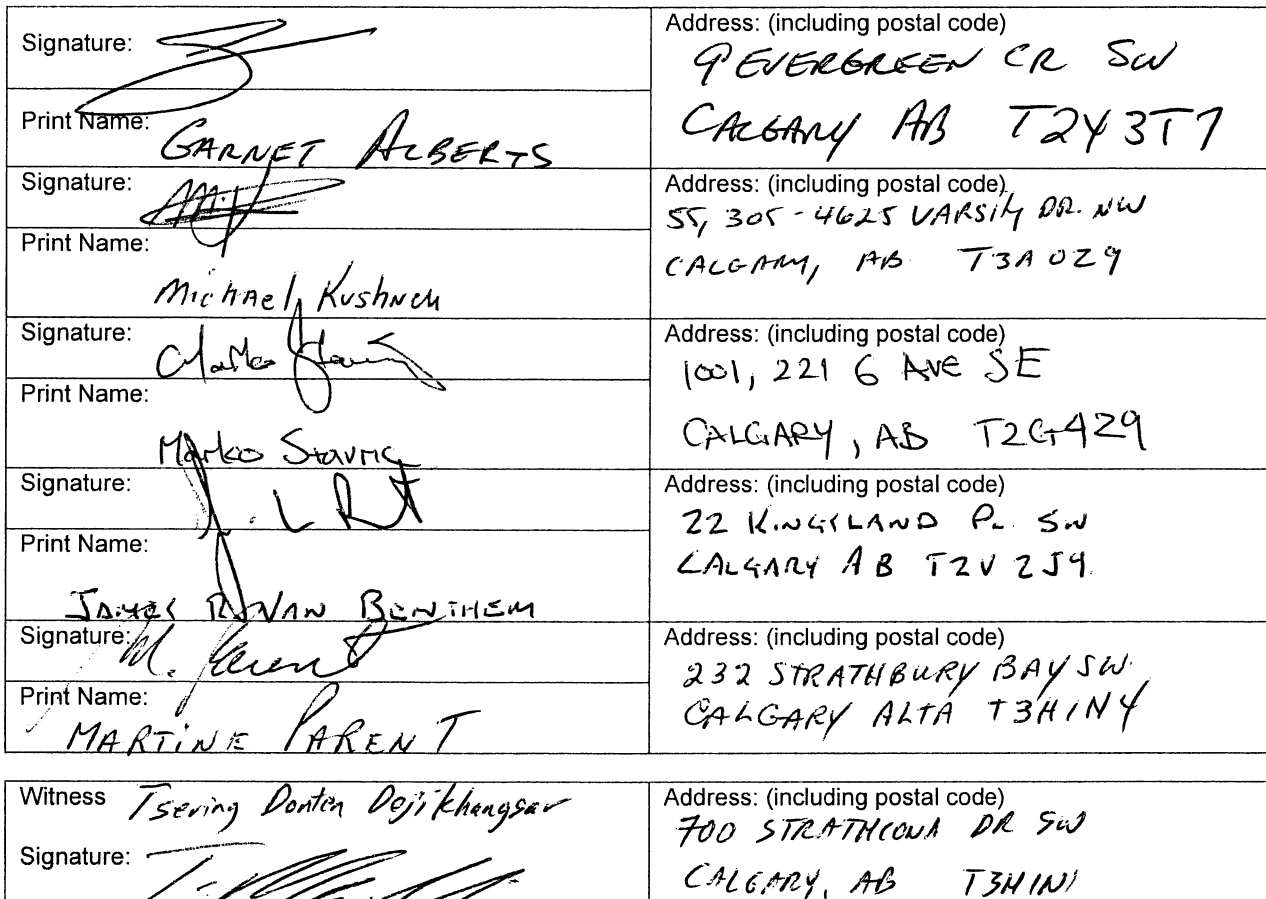 Signature:
Address: (including postal code)
9 EVERGREEN CR SW
CALGARY AB T2Y3T7
Print Name:
GARNET ALBERTS
Signature:
Address: (including postal code)
55, 305-4625 VARSITY DR. NW
CALGARY, AB T3A 0Z9
Print Name:
Michael Kushner
Signature:
Address: (including postal code)
1001, 221 6 AVE SE
CALGARY, AB T2G4Z9
Print Name:
Marko Stavric
Signature:
Address: (including postal code)
22 KINGSLAND PL SW
CALGARY AB T2V 2J9
Print Name:
JAMES R VAN BENTHEM
Signature:
M. Parent
Address: (including postal code)
232 STRATHBURY BAY SW
CALGARY ALTA T3H1N4
Print Name:
MARTINE PARENT
Witness Tsering Donten Dojikhangsar
Address: (including postal code)
700 STRATHCONA DR SW
CALGARY, AB T3H1N1
Signature: